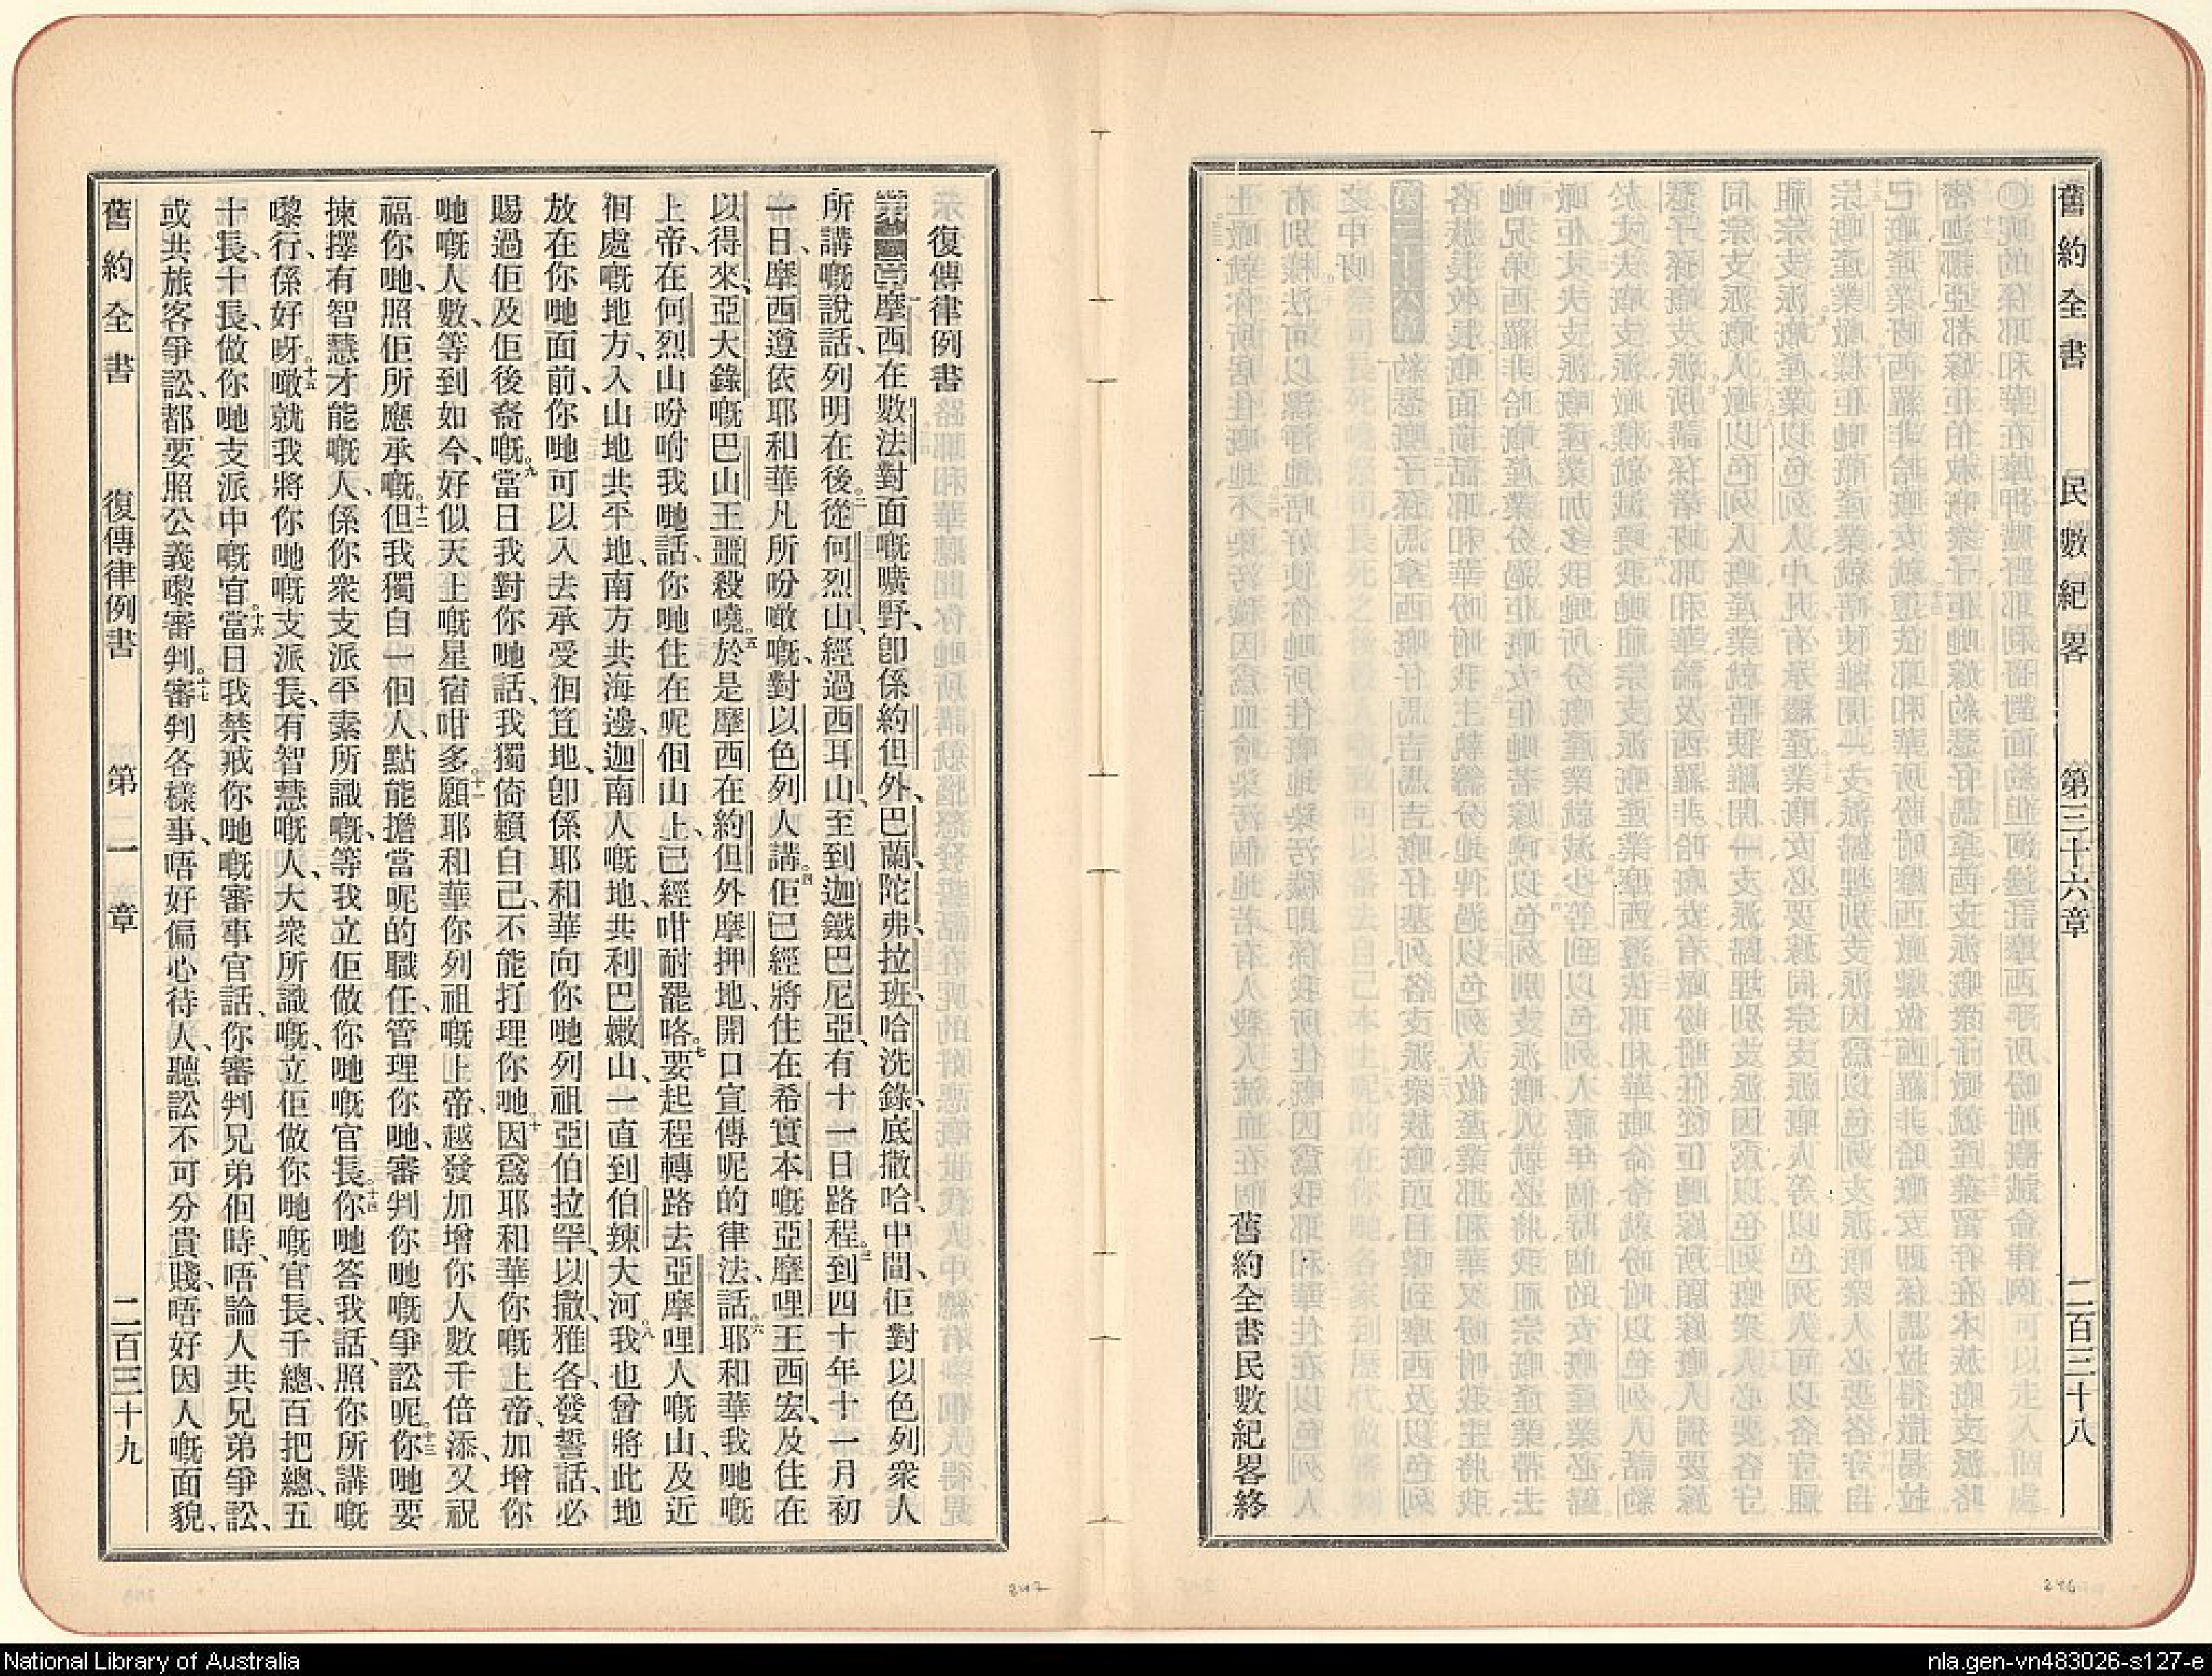 舊約全書 民數紀畧 第三十六章 二百三十八
舊約全書民數紀畧終
復傳律例書
第一章一摩西在數法對面嘅曠野、卽係約但外、巴蘭、陀弗、拉班、哈洗錄、底撒哈中間、佢對以色列衆人
所講嘅說話、列明在後。二從何烈山、經過西耳山、至到迦鐵巴尼亞、有十一日路程。三到四十年十一月初
一日、摩西遵依耶和華凡所吩噉嘅、對以色列人講。四佢已經將住在希實本嘅亞摩哩王西宏、及住在
以得來、亞大錄嘅巴山王噩殺嘵。五於是摩西在約但外摩押地、開口宣傳呢的律法、話、六耶和華我哋嘅
上帝、在何烈山吩咐我哋話、你哋住在呢個山上、已經咁耐罷咯。七要起程轉路去亞摩哩人嘅山、及近
個處嘅地方、入山地共平地、南方共海邊、迦南人嘅地、共利巴嫩山、一直到伯辣大河。八我也曾將此地
放在你哋面前、你哋可以入去承受個笪地、卽係耶和華向你哋列祖亞伯拉罕、以撒、雅各、發誓話、必
賜過佢及佢後裔嘅。九當日我對你哋話、我獨倚賴自己、不能打理你哋。十因爲耶和華你嘅上帝、加增你
哋嘅人數、等到如今、好似天上嘅星宿咁多。十一願耶和華你列祖嘅上帝、越發加增你人數千倍添、又祝
福你哋、照佢所應承嘅。十二但我獨自一個人、點能擔當呢的職任、管理你哋、審判你哋嘅爭訟呢。十三你哋要
揀擇有智慧才能嘅人、係你衆支派平素所識嘅、等我立佢做你哋嘅官長。十四你哋答我話、照你所講嘅
嚟行、係好呀。十五噉就我將你哋嘅支派長、有智慧嘅人、大衆所識嘅、立佢做你哋嘅官長、千總、百把總、五
十長、十長、做你哋支派中嘅官。十六當日我禁戒你哋嘅審事官話、你審判兄弟個時、唔論人共兄弟爭訟、
或共旅客爭訟、都要照公義嚟審判。十七審判各樣事、唔好偏心待人、聽訟不可分貴賤、唔好因人嘅面貌、
舊約全書 復傳律例書 第一章 二百三十九
247
246
National Library of Australia
nla.gen-vn483026-s127-e